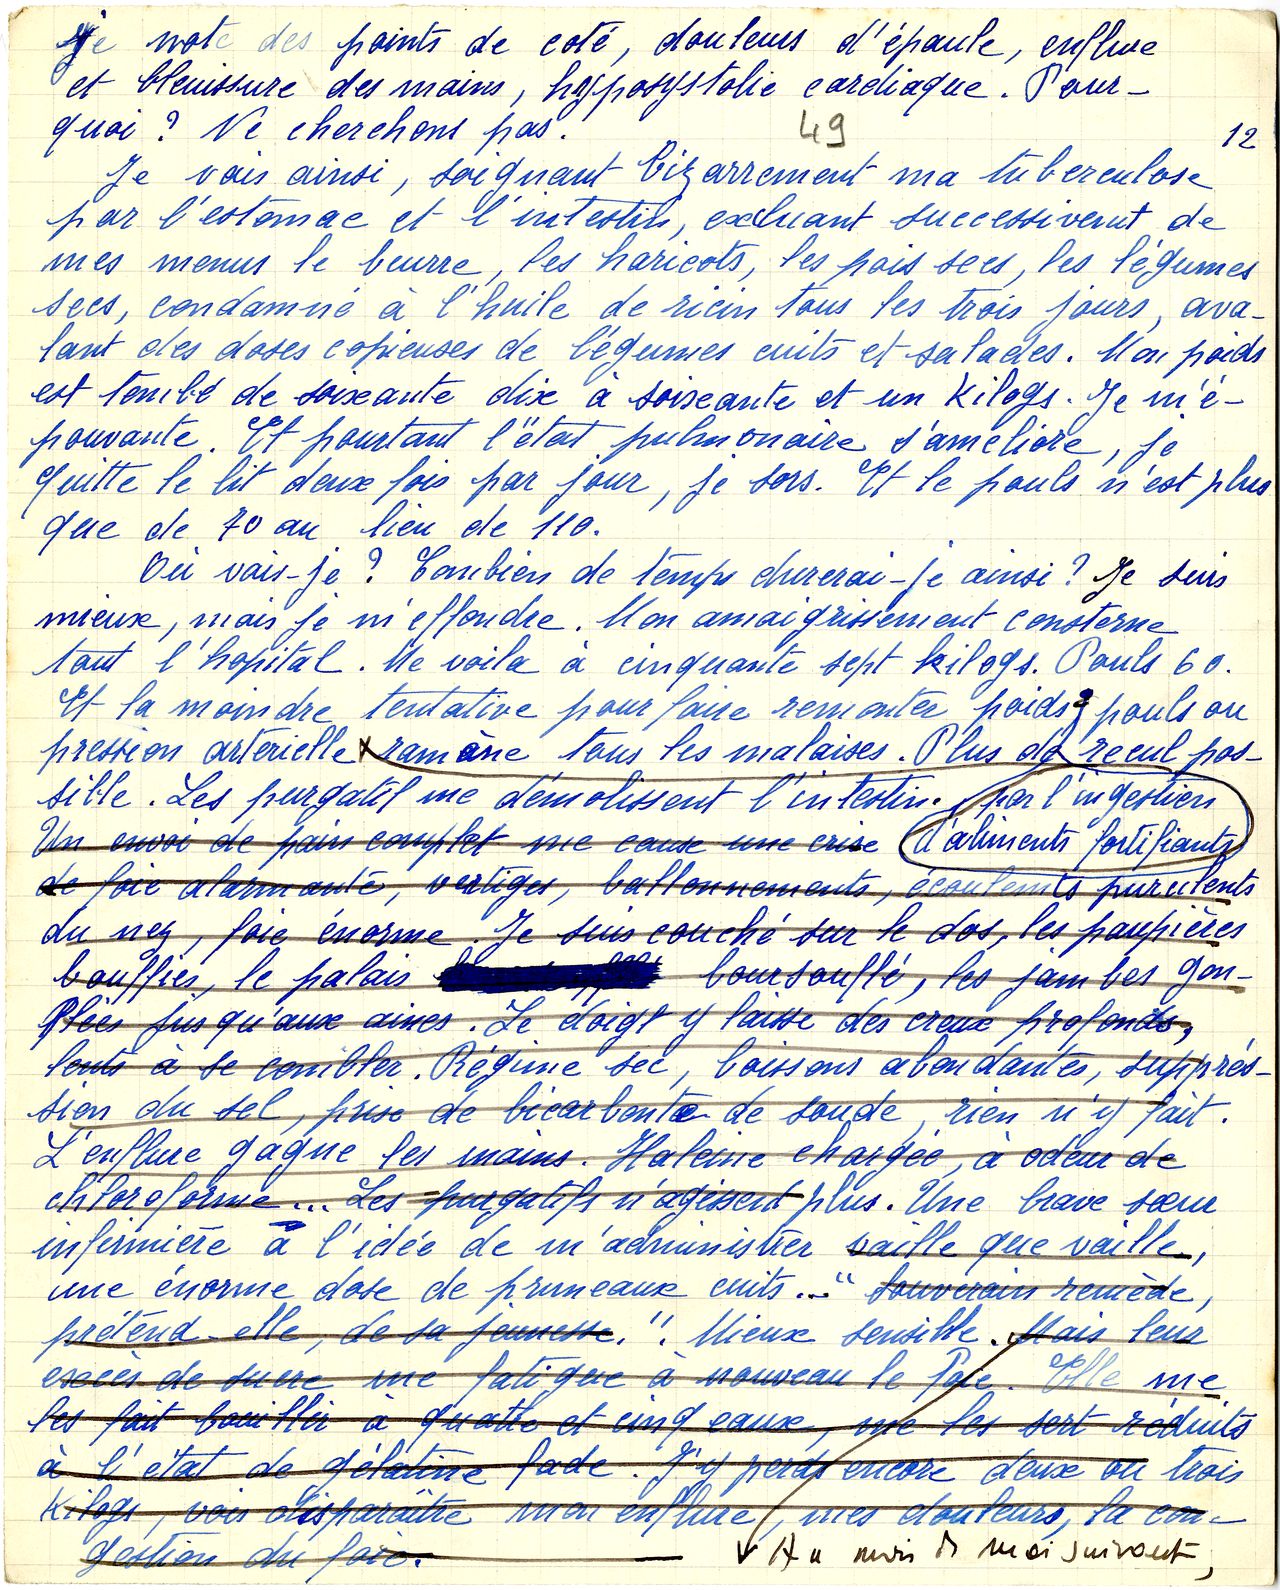 Je note des points de coté, douleurs d'épaule, enflure
et bleuissure des mains, hyposystolie cardiaque. Pour-
quoi ? Ne cherchons pas.
49
12
Je vais ainsi, soignant bizarrement ma tuberculose
par l'estomac et l'intestin, excluant successivement de
mes menus le beurre, les haricots, les pois secs, les légumes
secs, condamné à l'huile de ricin tous les trois jours, ava-
lant des doses copieuses de légumes cuits et salades. Mon poids
est tombé de soixante dix à soixante et un kilogs. Je m'é-
pouvante. Et pourtant l'état pulmonaire s'améliore, je
quitte le lit deux fois par jour, je sors. Et le pouls n'est plus
que de 70 au lieu de 110.
Où vais-je ? Combien de temps durerai-je ainsi ? Je suis
mieux, mais je m'effondre. Mon amaigrissement consterne
tout l'hopital. Me voila à cinquante sept kilogs. Pouls 60.
Et la moindre tentative pour faire remonter poids, pouls ou
pression artérielle x ramène tous les malaises. Plus de recul pos-
sible. Les purgatif me démolissent l'intestin. par l'ingestion
Un envoi de pain complet me cause une crise d'aliments fortifiants
de foie alarmante, vertiges, ballonnements, écoulements purulents
du nez, foie énorme. Je suis couché sur le dos, les paupières
bouffies, le palais boursoufflé, les jambes gon-
flées jusqu'aux aines. Le doigt y laisse des creux profonds,
lents à se combler. Régime sec, boissons abondantes, suppres-
sion du sel, prise de bicarbonate de soude, rien n'y fait.
L'enflure gagne les mains. Haleine chargée, à odeur de
chloroforme... Les purgatifs n'agissent plus. Une brave sœur
infirmière à l'idée de m'administrer vaille que vaille,
une énorme dose de pruneaux cuits..." souverain remède,
prétend-elle, de sa jeunesse.". Mieux sensible. Mais leur
excès de sucre me fatigue à nouveau le foie. Elle me
les fait bouillir à quatre et cinq eaux, me les sert réduits
à l'état de gélatine fade. J'y perds encore deux ou trois
kilogs, vois disparaître mon enflure, mes douleurs, la con-
gestion du foie.
Au mois de mai suivant,